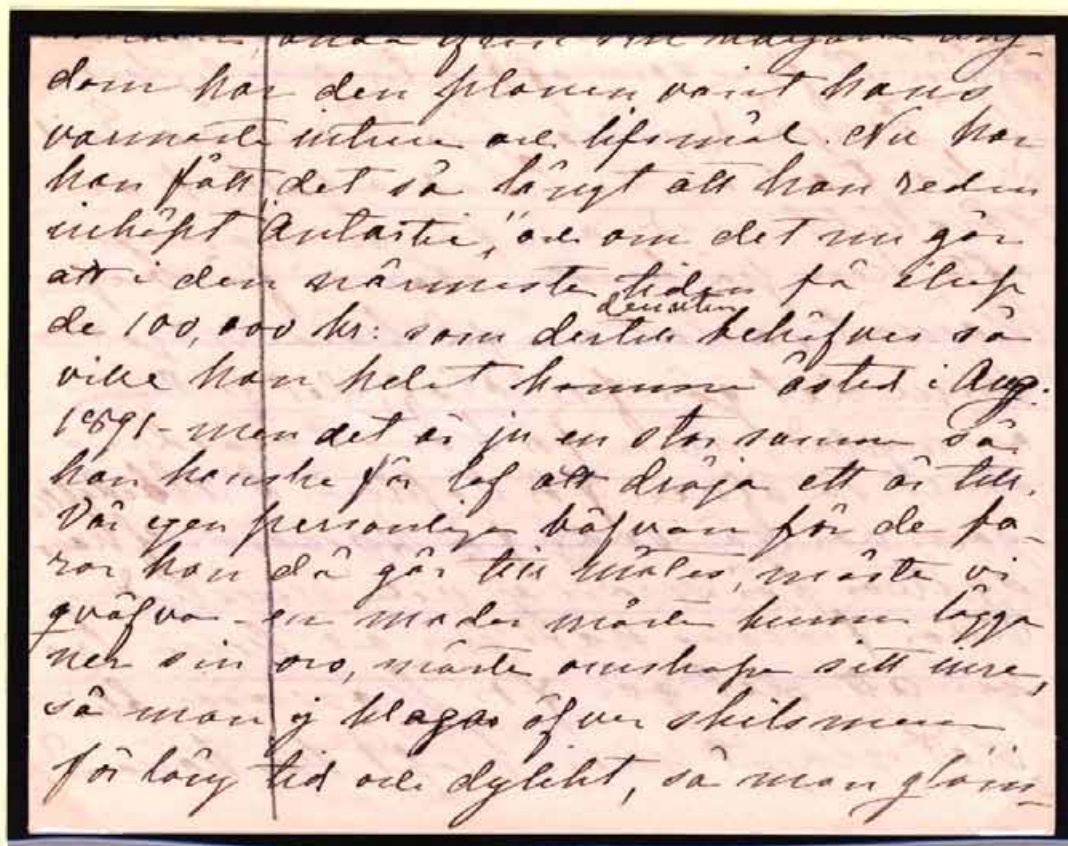 ända ifrån sin ung-
dom har den planen varit hans
varmaste intresse och lifsmål. Nu har
han fått det så långt att han redan
inköpt "Antarctic", och om det nu går
att i den närmaste tiden få ihop
dessutom
de 100,000 kr: som dertill behöfves så
ville han helst komma åsted i Aug.
1891 - men det är ju en stor summa så
han kanske får lof att dröja ett år till.
Vår egen personliga bäfvan för de fa-
ror han då går till mötes, måste vi
qväfva - en moder måste kunna lägga
ner sin oro, måste omskapa sitt inre,
så man ej klagar öfver skilsmessa
för lång tid och dylikt, så man glöm-